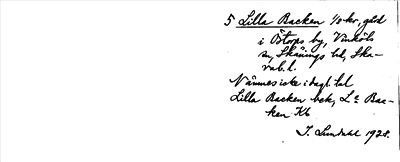 5 Lilla Backen 1/0 kr, gård
i Östorps by, Vinköls
sn, Skånings hd, Ska-
rab. l.
Nämnes icke i dagl. tal
Lilla Backen bck, La Bac-
ken Kb
J. Sundahl 1928.